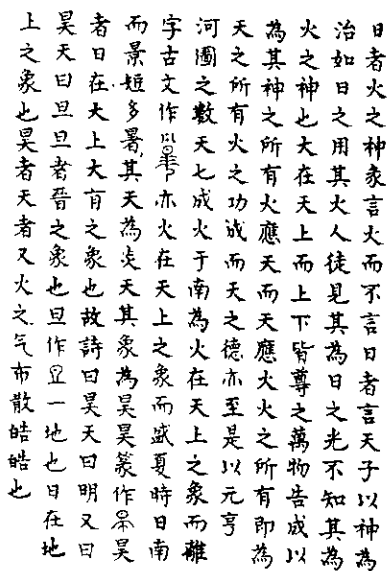 日者火之神象言火而不言日者言天子以神為
治如日之用其火人徒見其為日之光不知其為
火之神也大在天上而上下皆尊之萬物告成以
為其神之所有火應天而天應火火之所有即為
天之所有火之功成而天之德亦至是以元亨
河圖之數天七成火于南為火在天上之象而離
字古文作亦火在天上之象而盛夏時日南
而景短多暑其天為炎天其象為昊昊篆作昊
者日在大上大有之象也故詩曰昊天曰明又曰
昊天曰旦旦者晉之象也旦作一地也日在地
上之象也昊者天者又火之气布散皓皓也